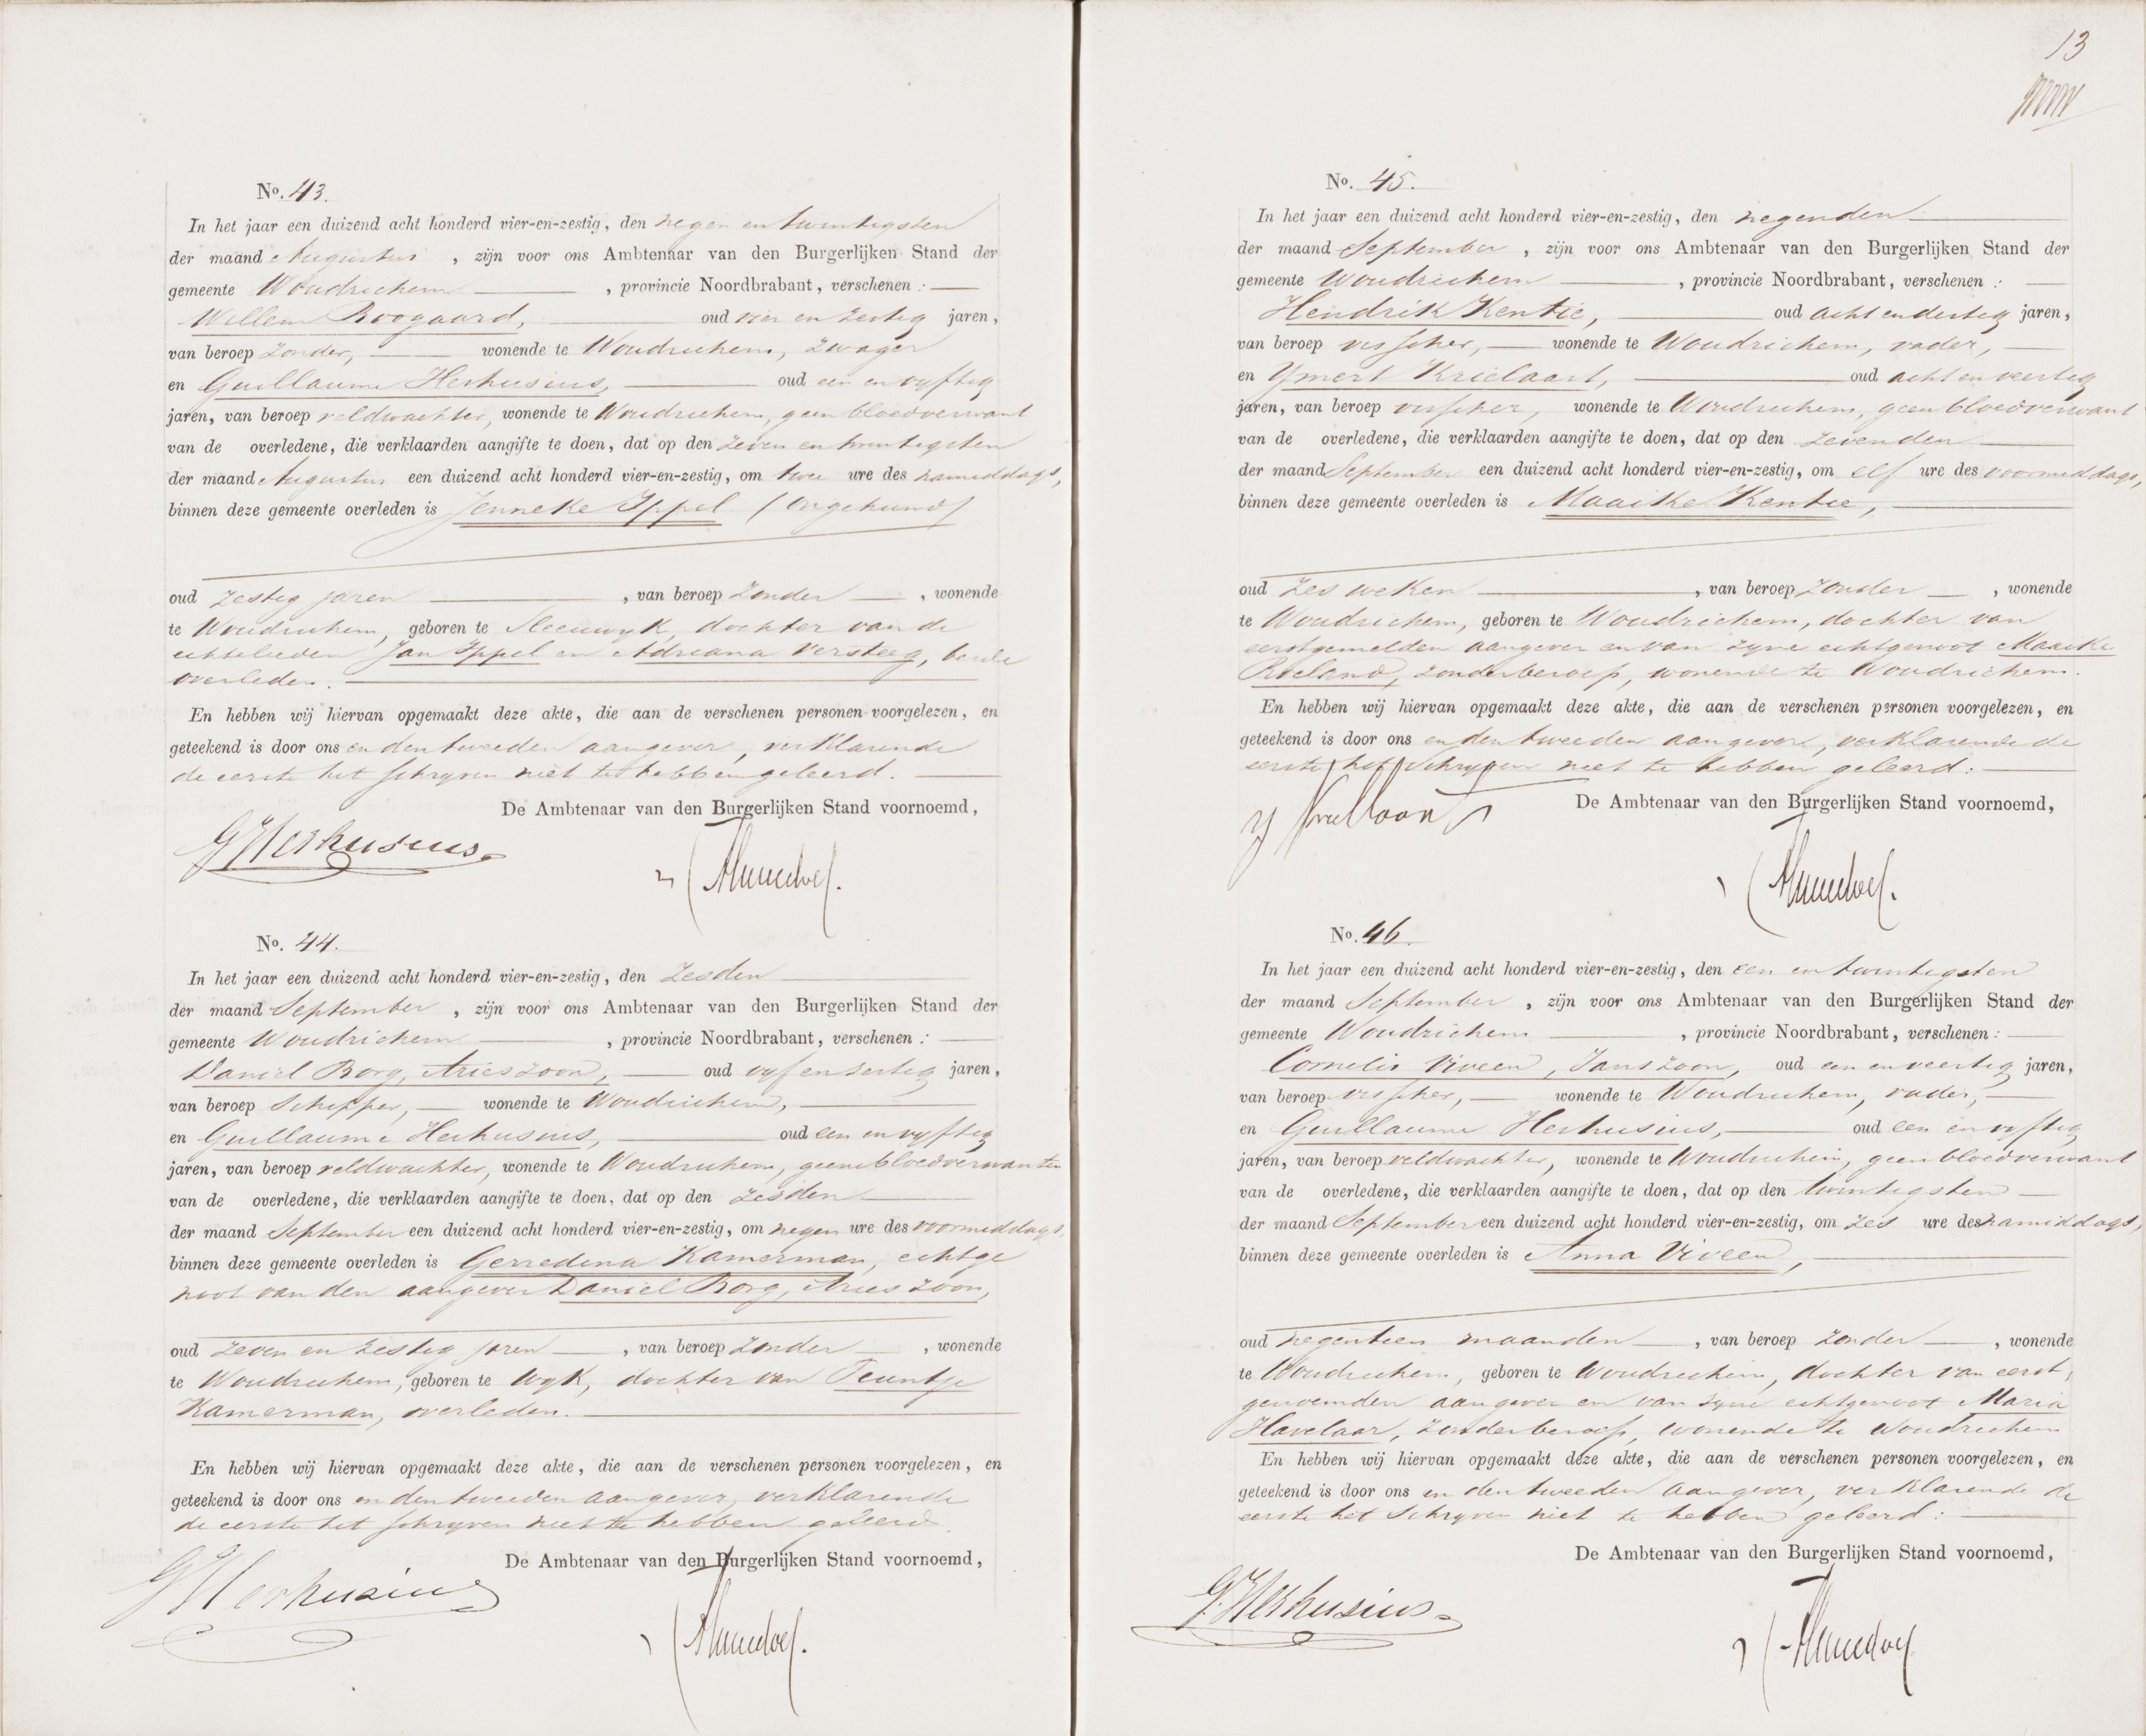 No. 43.
In het jaar een duizend acht honderd vier-en-zestig, den negen en twintigsten
der maand Augustus , zijn voor ons Ambtenaar van den Burgerlijken Stand der
gemeente Woudrichem , provincie Noordbrabant, verschenen :
Willem Boogaard, oud vier en zestig jaren,
van beroep zonder, wonende te Woudrichem, zwager
en Guillaume Herhusius, oud een en vyftig
jaren, van beroep veldwachter, wonende te Woudrichem, geen bloedverwant
van de overledene, die verklaarden aangifte te doen, dat op den zeven en twintigsten
der maand Augustus een duizend acht honderd vier-en-zestig, om twee ure des namiddags,
binnen deze gemeente overleden is Jenneke Ippel (ongehuwd)
oud zestig jaren , van beroep zonder , wonende
te Woudrichem, geboren te Sleeuwyk, dochter van de
echtelieden Jan Ippel en Adriana Versteeg, beide
overleden.
En hebben wij hiervan opgemaakt deze akte, die aan de verschenen personen voorgelezen, en
geteekend is door ons en den tweeden aangever, verklarende
de eerste het schryven niet te hebben geleerd.
De Ambtenaar van den Burgerlijken Stand voornoemd,
G Herhusius
No. 44.
In het jaar een duizend acht honderd vier-en-zestig, den zesden
der maand September , zijn voor ons Ambtenaar van den Burgerlijken Stand der
gemeente Woudrichem , provincie Noordbrabant, verschenen :
Daniel Borg, Arieszoon, oud vyf en zestig jaren,
van beroep Schipper, wonende te Woudrichem,
en Guillaume Herhusius, oud een en vyftig
jaren, van beroep veldwachter, wonende te Woudrichem, geene bloedverwanten
van de overledene, die verklaarden aangifte te doen, dat op den zesden
der maand September een duizend acht honderd vier-en-zestig, om negen ure des voormiddags
binnen deze gemeente overleden is Gerredina Kamerman, echtge
noot van den aangever Daniel Borg, Arieszoon,
oud zeven en zestig jaren , van beroep zonder , wonende
te Woudrichem, geboren te Wyk, dochter van Teuntje
Kamerman, overleden.
En hebben wij hiervan opgemaakt deze akte, die aan de verschenen personen voorgelezen, en
geteekend is door ons en den tweeden aangever, verklarende
de eerste het schryven niet te hebben geleerd.
De Ambtenaar van den Burgerlijken Stand voornoemd,
G Herhusius
13
No. 45.
In het jaar een duizend acht honderd vier-en-zestig, den negenden
der maand September , zijn voor ons Ambtenaar van den Burgerlijken Stand der
gemeente Woudrichem , provincie Noordbrabant, verschenen :
Hendrik Kentie, oud acht en dertig jaren,
van beroep visscher, wonende te Woudrichem, vader,
en Ymert Krielaart, oud acht en veertig
jaren, van beroep visscher, wonende te Woudrichem, geen bloedverwant
van de overledene, die verklaarden aangifte te doen, dat op den zevenden
der maand September een duizend acht honderd vier-en-zestig, om elf ure des voormiddags,
binnen deze gemeente overleden is Maaike Kentie,
oud zes weken , van beroep zonder , wonende
te Woudrichem, geboren te Woudrichem, dochter van
eerstgemelden aangever en van zyne echtgenoot Maaike
Roeland, zonder beroep, wonende te Woudrichem.
En hebben wij hiervan opgemaakt deze akte, die aan de verschenen personen voorgelezen, en
geteekend is door ons en den tweeden aangever, verklarende de
eerste het schryven niet te hebben geleerd.
De Ambtenaar van den Burgerlijken Stand voornoemd,
No. 46.
In het jaar een duizend acht honderd vier-en-zestig, den een en twintigsten
der maand September , zijn voor ons Ambtenaar van den Burgerlijken Stand der
gemeente Woudrichem , provincie Noordbrabant, verschenen :
Cornelis Viveen, Janszoon, oud een en veertig jaren,
van beroep visscher, wonende te Woudrichem, vader,
en Guillaume Herhusius, oud een en vyftig
jaren, van beroep veldwachter, wonende te Woudrichem, geen bloedverwant
van de overledene, die verklaarden aangifte te doen, dat op den twintigsten
der maand September een duizend acht honderd vier-en-zestig, om zes ure des namiddags,
binnen deze gemeente overleden is Anna Viveen,
oud negentien maanden , van beroep zonder , wonende
te Woudrichem, geboren te Woudrichem, dochter van eerst
genoemden aangever en van zyne echtgenoot Maria
Havelaar, zonder beroep, wonende te Woudrichem
En hebben wij hiervan opgemaakt deze akte, die aan de verschenen personen voorgelezen, en
geteekend is door ons en den tweeden aangever, verklarende de
eerste het Schryven niet te hebben geleerd.
De Ambtenaar van den Burgerlijken Stand voornoemd,
G. Herhusius